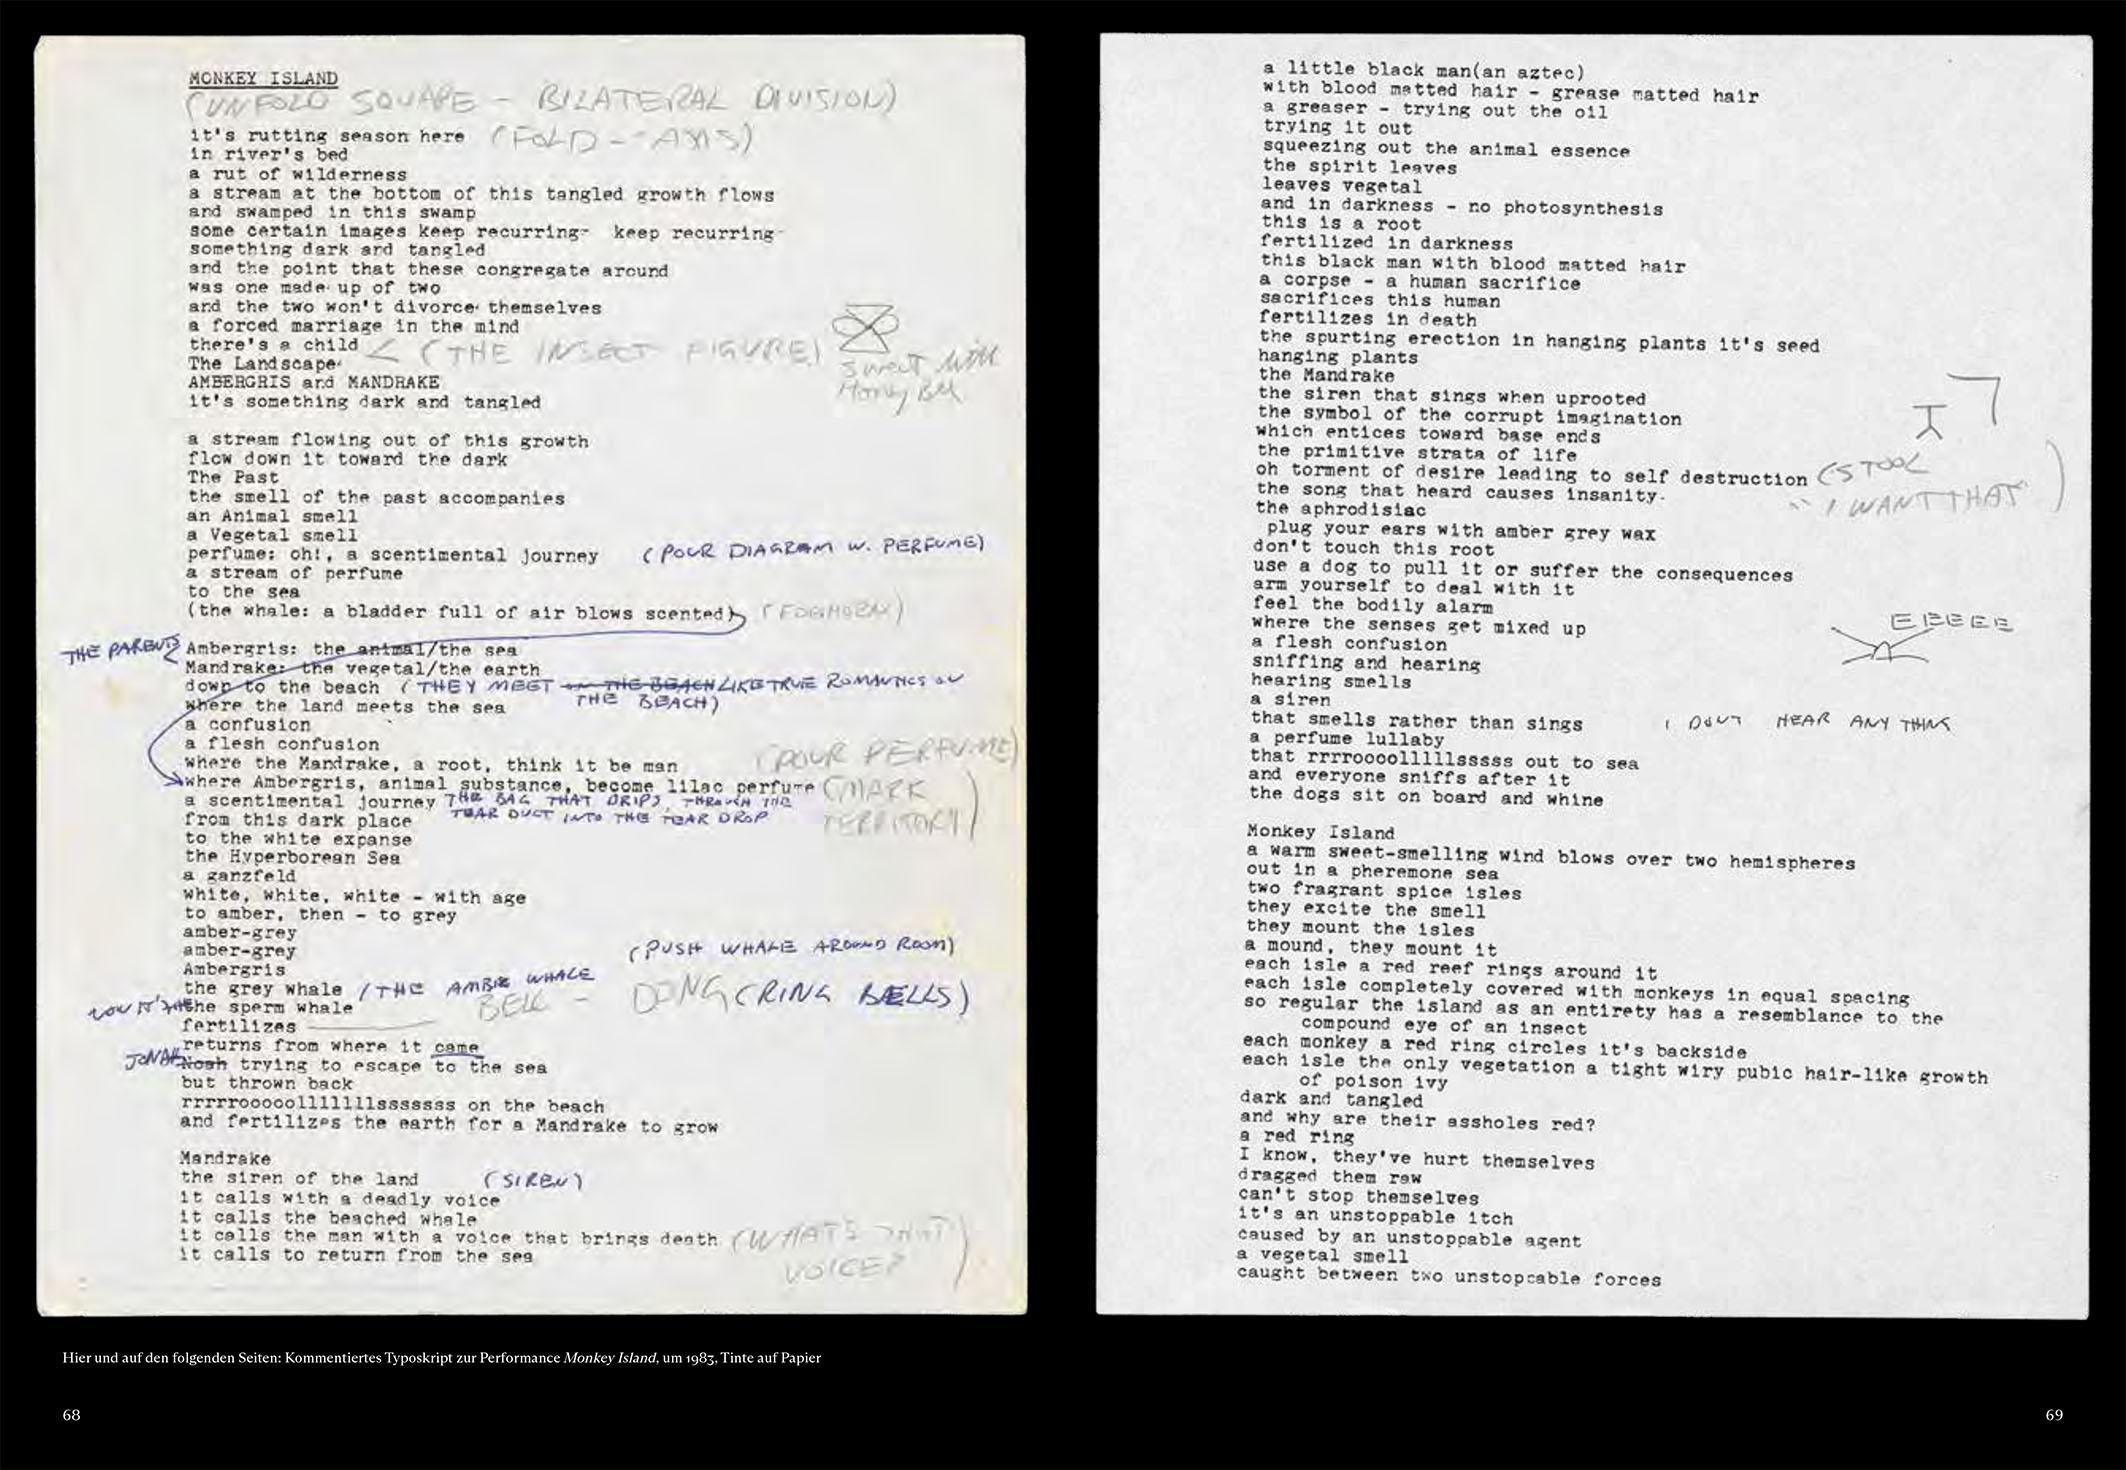 MONKEY ISLAND
(UNFOLD SQUARE - BILATERAL DIVISION)
it's rutting season here (FOLD - AXIS)
in river's bed
a rut of wilderness
a stream at the bottom of this tangled growth flows
and swamped in this swamp
some certain images keep recurring- keep recurring-
something dark and tangled
and the point that these congregate around
was one made up of two
and the two won't divorce themselves
a forced marriage in the mind
there's a child < (THE INSECT FIGURE)
The Landscape
AMBERGRIS and MANDRAKE
it's something dark and tangled
Sweet Milk
Honey Bee
a stream flowing out of this growth
flow down it toward the dark
The Past
the smell of the past accompanies
an Animal smell
a Vegetal smell
perfume: oh!, a scentimental journey (POUR DIAGRAM W. PERFUME)
a stream of perfume
to the sea
(the whale: a bladder full of air blows scented) (FOGHORN)
THE PARENTS Ambergris: the animal/the sea
Mandrake: the vegetal/the earth
down to the beach (THEY MEET ON THE BEACH LIKE TRUE ROMANTICS ON
THE BEACH)
where the land meets the sea
a confusion
a flesh confusion
where the Mandrake, a root, think it be man (POUR PERFUME)
where Ambergris, animal substance, become lilac perfume (MARK
TERRITORY)
a scentimental journey THE BAG THAT DRIPS, THROUGH THE
from this dark place TEAR DUCT INTO THE TEAR DROP
to the white expanse
the Hyperborean Sea
a ganzfeld
white, white, white - with age
to amber, then - to grey
amber-grey
amber-grey (PUSH WHALE AROUND ROOM)
Ambergris
the grey whale (THE AMBER WHALE
BELL - DONG (RING BELLS)
NOW IT'S the sperm whale
fertilizes
returns from where it came
JONAH Noah trying to escape to the sea
but thrown back
rrrrrooooolllllllsssssss on the beach
and fertilizes the earth for a Mandrake to grow
Mandrake
the siren of the land (SIREN)
it calls with a deadly voice
it calls the beached whale
it calls the man with a voice that brings death (WHAT'S THAT
VOICE?)
it calls to return from the sea
a little black man(an aztec)
with blood matted hair - grease matted hair
a greaser - trying out the oil
trying it out
squeezing out the animal essence
the spirit leaves
leaves vegetal
and in darkness - no photosynthesis
this is a root
fertilized in darkness
this black man with blood matted hair
a corpse - a human sacrifice
sacrifices this human
fertilizes in death
the spurting erection in hanging plants it's seed
hanging plants
the Mandrake
the siren that sings when uprooted
the symbol of the corrupt imagination
which entices toward base ends
the primitive strata of life
oh torment of desire leading to self destruction (STOOL
"I WANT THAT")
the song that heard causes insanity.
the aphrodisiac
plug your ears with amber grey wax
don't touch this root
use a dog to pull it or suffer the consequences
arm yourself to deal with it
feel the bodily alarm
where the senses get mixed up EEEEE
a flesh confusion
sniffing and hearing
hearing smells
a siren
that smells rather than sings I DON'T HEAR ANY THING
a perfume lullaby
that rrrroooollllllsssss out to sea
and everyone sniffs after it
the dogs sit on board and whine
Monkey Island
a warm sweet-smelling wind blows over two hemispheres
out in a pheremone sea
two fragrant spice isles
they excite the smell
they mount the isles
a mound, they mount it
each isle a red reef rings around it
each isle completely covered with monkeys in equal spacing
so regular the island as an entirety has a resemblance to the
compound eye of an insect
each monkey a red ring circles it's backside
each isle the only vegetation a tight wiry pubic hair-like growth
of poison ivy
dark and tangled
and why are their assholes red?
a red ring
I know, they've hurt themselves
dragged them raw
can't stop themselves
it's an unstoppable itch
caused by an unstoppable agent
a vegetal smell
caught between two unstoppable forces
Hier und auf den folgenden Seiten: Kommentiertes Typoskript zur Performance Monkey Island, um 1983, Tinte auf Papier
68
69